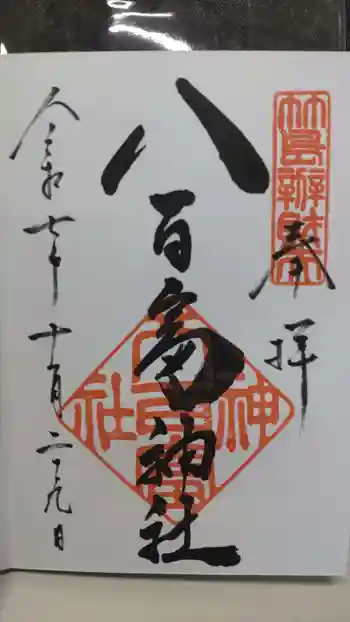 奉拝
竹島辨財天
八百富神社
八百富神社
令和七年十月二十九日